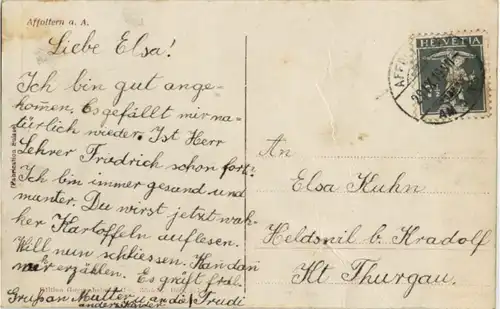 Affoltern a. A.
Liebe Elsa!
Ich bin gut ange-
kommen. Es gefällt mir na-
türlich wieder. Ist Herr
Lehrer Friedrich schon fort?
Ich bin immer gesund und
munter. Du wirst jetzt
Kartoffeln auflesen.
Will nun schliessen.
erzählen. Es grüßt
Gruss an Mutter u. an die Trudi
HELVETIA
An
Elsa Kuhn
Heldsnil b. Kradolf
Kt Thurgau.